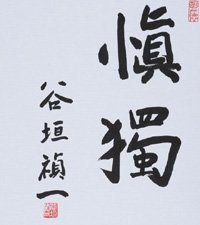 慎獨
谷垣禎一